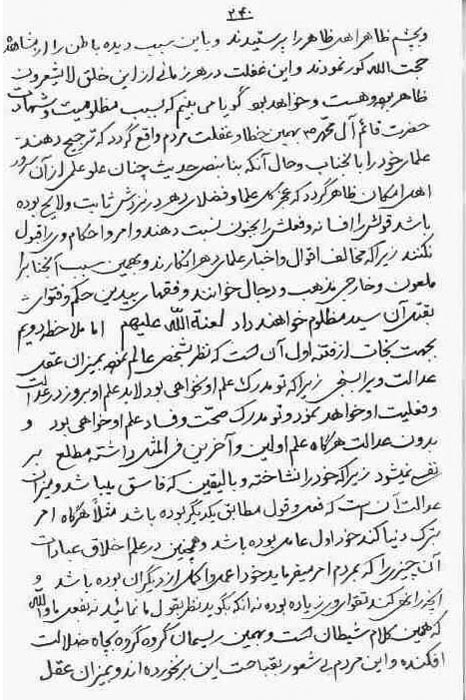 ۲۴۰
وبچشم ظاهر اهل ظاهر را پرستیدند و باین سبب دیده باطن را از مشاهده
حجت الله کور نمودند و این غفلت در هر زمانی از این خلق لایشعرون
ظاهر بود و هست و خواهد بود گویا می بینم که بسبب مظلومیت و شهادت
حضرت قائم آل محمد ص همین خطا و غفلت مردم واقع گردد که ترجیح دهند
علمای خود را بآنجناب و حال آنکه بنا بنص حدیث چنان علو علمی از آن سرور
اهل امکان ظاهر گردد که عجز کل علما و فضلای دهر در نزدش ثابت و لایح بوده
باشد قولش را افسانه و فعلش را بجنون نسبت دهند و امر و احکام ویرا قبول
نکنند زیرا که مخالف اقوال و اخبار علمای دهر انکارند و بهمین سبب آنجناب را
ملعون و خارجی مذهب و دجال خوانند و فقهای بیدین حکم و فتوای
بقتل آن سید مظلوم خواهند داد لعنة الله علیهم اما ملاحظه دویم
بجهت نجات از فتنه اول آن است که نظر بشخص عالم نموده بمیزان عقل
عدالت ویرا بسنجی زیرا که تو مدرک علم او نخواهی بود لابد علم او بروز در عدالت
و فعلیت او خواهد نمود و تو مدرک صحت و فساد علم او خواهی بود و
بدون عدالت هرگاه علم اولین و آخرین فی المثل داشته مطلع بر
نفسه نمیشود زیرا که خود را نشاخته و بالیقین که فاسق میباشد و میزان
عدالت آن است که فعل و قول مطابق یکدیگر بوده باشد مثلاً هرگاه امر
بترک دنیا کند خود اول عامل بوده باشد و همچنین در علم اخلاق عبادات
آن چیزیرا که بمردم امر میفرماید خود اعمل و اکمل از دیگران بوده باشد و
آنچه را نهی کند تقوای وی زیاده بوده نه آنکه بگوید نظر بقول ما نمائید نه بفعل ما والله
که همین کلام شیطان است و بهمین ریسمان گروه گروه بچاه ضلالت
افکنده و این مردم بی شعور بقباحت این بر نخورده اند و بمیزان عقل